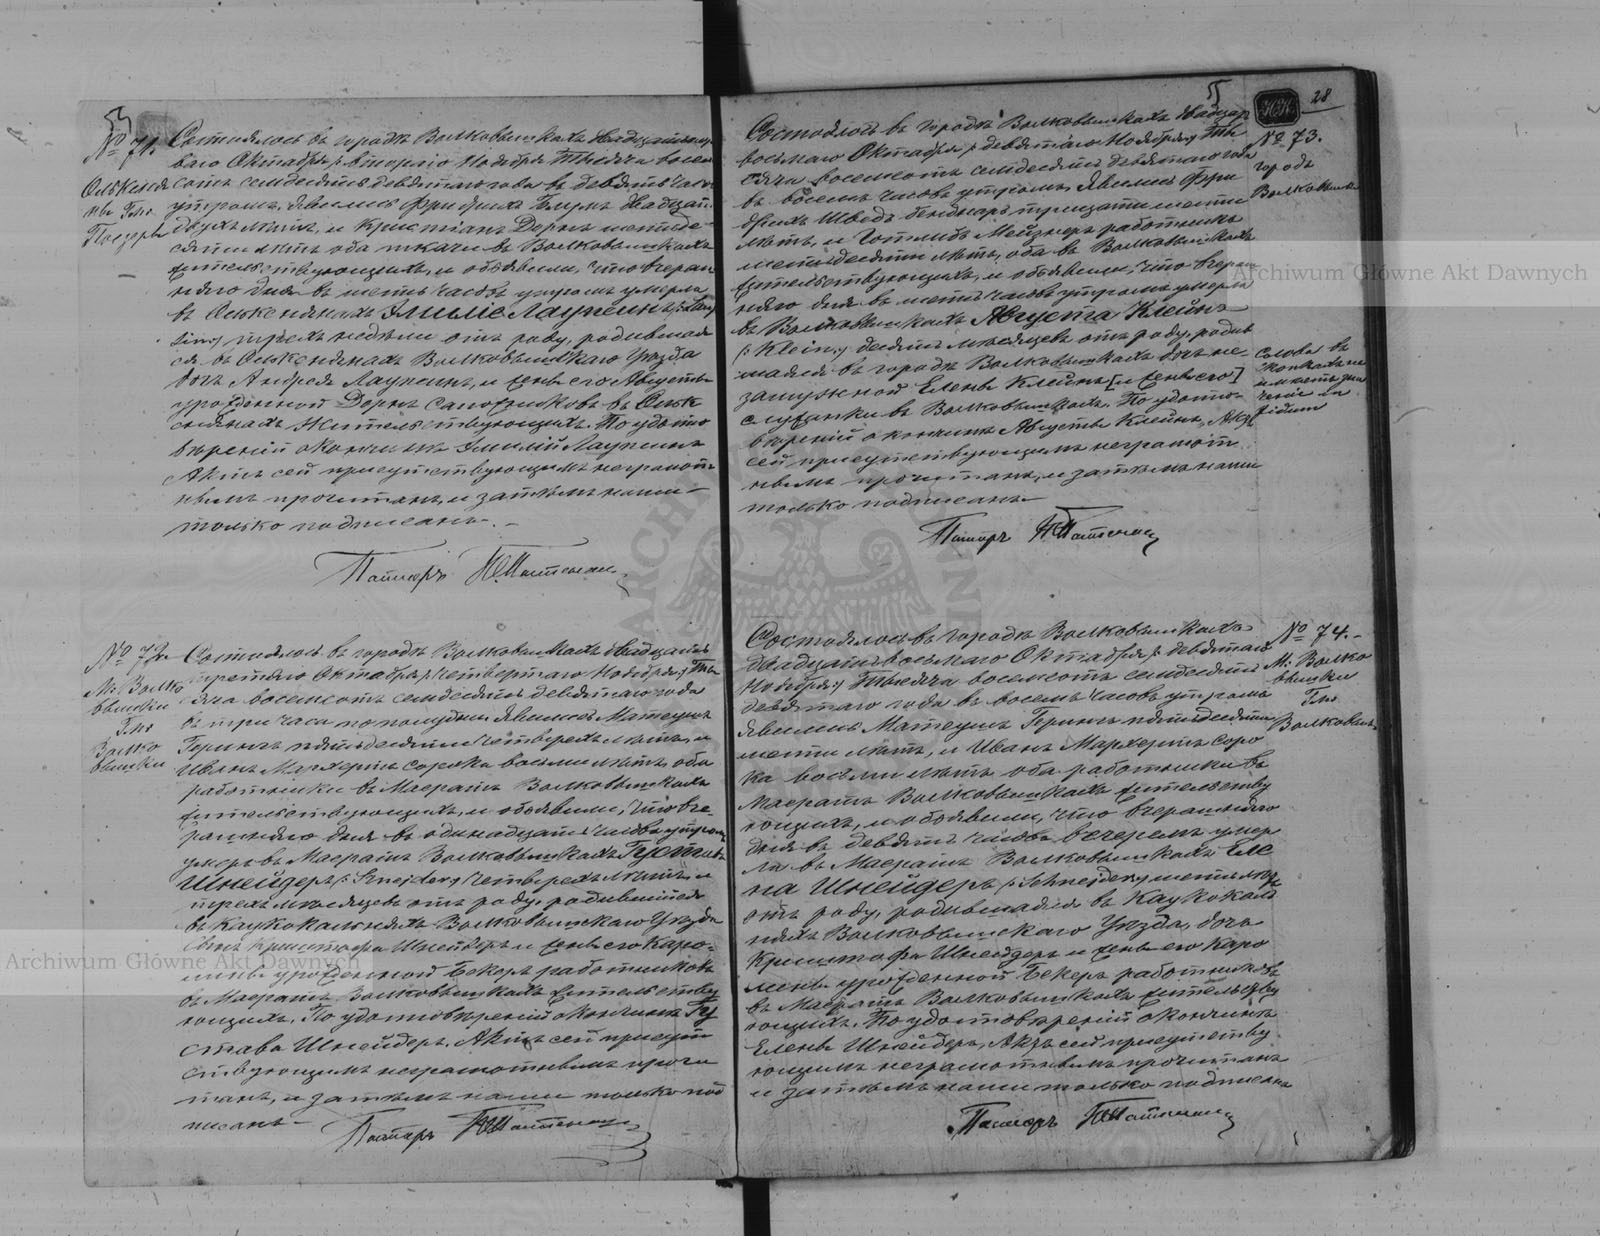 54
№ 71.
Ольксня
Состоялось въ городѣ Волковышкахъ двадцать
ваго Октября /: втораго Ноября :/ Тысяча восем
сотъ семдесятъ девятаго года въ девять часо
утромъ, явились Фридрихъ Блумъ двадцати
двухъ лѣтъ, и Кристіанъ Дернъ шестиде-
сяти лѣтъ оба ткачи въ Волковышкахъ
жительствующихъ, и объявили, что вчераш
няго дня въ шесть часовъ утромъ умерла
въ Ольксенянахъ Эмилія Лаупеинъ
трехъ недѣли отъ роду, родившая
ся въ Ольксенянахъ Волковышскаго Уѣзда
дочь Андрея Лаупеинъ, и жены его Августы
урожденной Дернъ сапожниковъ въ Ольк
сенянахъ жительствующихъ. По удосто
вѣреніи о кончинѣ Эмиліи Лаупеинъ
Актъ сей присутствующимъ неграмот-
нымъ прочитанъ, и затѣмъ нами
только подписанъ.
Пасторъ
№ 72
М. Волко
вышки
Гмо
Волко
вышки
Состоялось въ городѣ Волковышкахъ двадцать
третяго Октября /: четвертаго Ноября :/ Ты
сяча восемсотъ семдесятъ девятаго года
въ три часа по полудни явились Матеушъ
Герингъ пятьдесяти четверехъ лѣтъ, и
Иванъ Маргертъ сорока восьми лѣтъ, оба
работники въ Маератъ Волковышкахъ
жительствующихъ, и объявили, что вче
рашняго дня въ одинадцать часовъ утромъ
умеръ въ Маератъ Волковышкахъ Густавъ
Шнейдеръ /: Sznejder :/ четверехъ лѣтъ, и
трехъ мѣсяцевъ отъ роду, родившійся
въ Каукокальняхъ Волковышскаго Уѣзда
сынъ Криштофа Шнейдеръ и жены его Каро-
лины урожденной Бекеръ работниковъ
въ Маератъ Волковышкахъ жительству
ющихъ. По удостовѣреніи о кончинѣ Гу
става Шнейдеръ, Актъ сей присут
ствующимъ неграмотнымъ прочи
танъ, и затѣмъ нами только под
писанъ
Пасторъ
55
28
№ 73.
городъ
Волковышки
Состоялось въ городѣ Волковышкахъ двадцать
восьмаго Октября /: девятаго Ноября :/ Ты
сяча восемсотъ семдесятъ девятаго года
въ восемь часовъ утромъ, явились Фри
дрихъ Шведъ бенднаръ тридцати шести
лѣтъ, и Готлибъ Мейзнеръ работникъ
шестидесяти лѣтъ, оба въ Волковышкахъ
жительствующихъ, и объявили, что вчераш
няго дня въ шесть часовъ утромъ умерла
въ Волковышкахъ Августа Клейнъ
/: Klein :/ десять мѣсяцевъ отъ роду, родив
шаяся въ городѣ Волковышкахъ дочь не-
замужной Елены Клейнъ [и жены его]
служанки въ Волковышкахъ. По удосто-
вѣреніи о кончинѣ Августы Клейнъ, Актъ
сей присутствующимъ неграмот
нымъ прочитанъ, и затѣмъ нами
только подписанъ
слова въ
скобкахъ не
имѣютъ зна
ченія
Пасторъ
№ 74.
М. Волко
вышки
Гмо
Волковыш.
Состоялось въ городѣ Волковышкахъ
двадцать восьмаго Октября /: девятаго
Ноября :/ Тысяча восемсотъ семдесятъ
девятаго года въ восемь часовъ утромъ
явились Матеушъ Герингъ пятьдесяти
шести лѣтъ, и Иванъ Маргертъ соро
ка восьми лѣтъ оба работники въ
Маератъ Волковышкахъ жительству
ющихъ, и объявили, что вчерашняго
дня въ девять часовъ вечеромъ умер
ла въ Маератъ Волковышкахъ Еле
на Шнейдеръ /: Schnejder :/ шесть лѣтъ
отъ роду, родившаяся въ Каукокаль
няхъ Волковышскаго Уѣзда, дочь
Криштофа Шнейдеръ и жены его Каро
лины урожденной Бекеръ работниковъ
въ Маератъ Волковышкахъ жительству
ющихъ. По удостовѣреніи о кончинѣ
Елены Шнейдеръ, Актъ сей присутству
ющимъ неграмотнымъ прочитанъ
и затѣмъ нами только подписанъ
Пасторъ
Archiwum Główne Akt Dawnych
Archiwum Główne Akt Dawnych